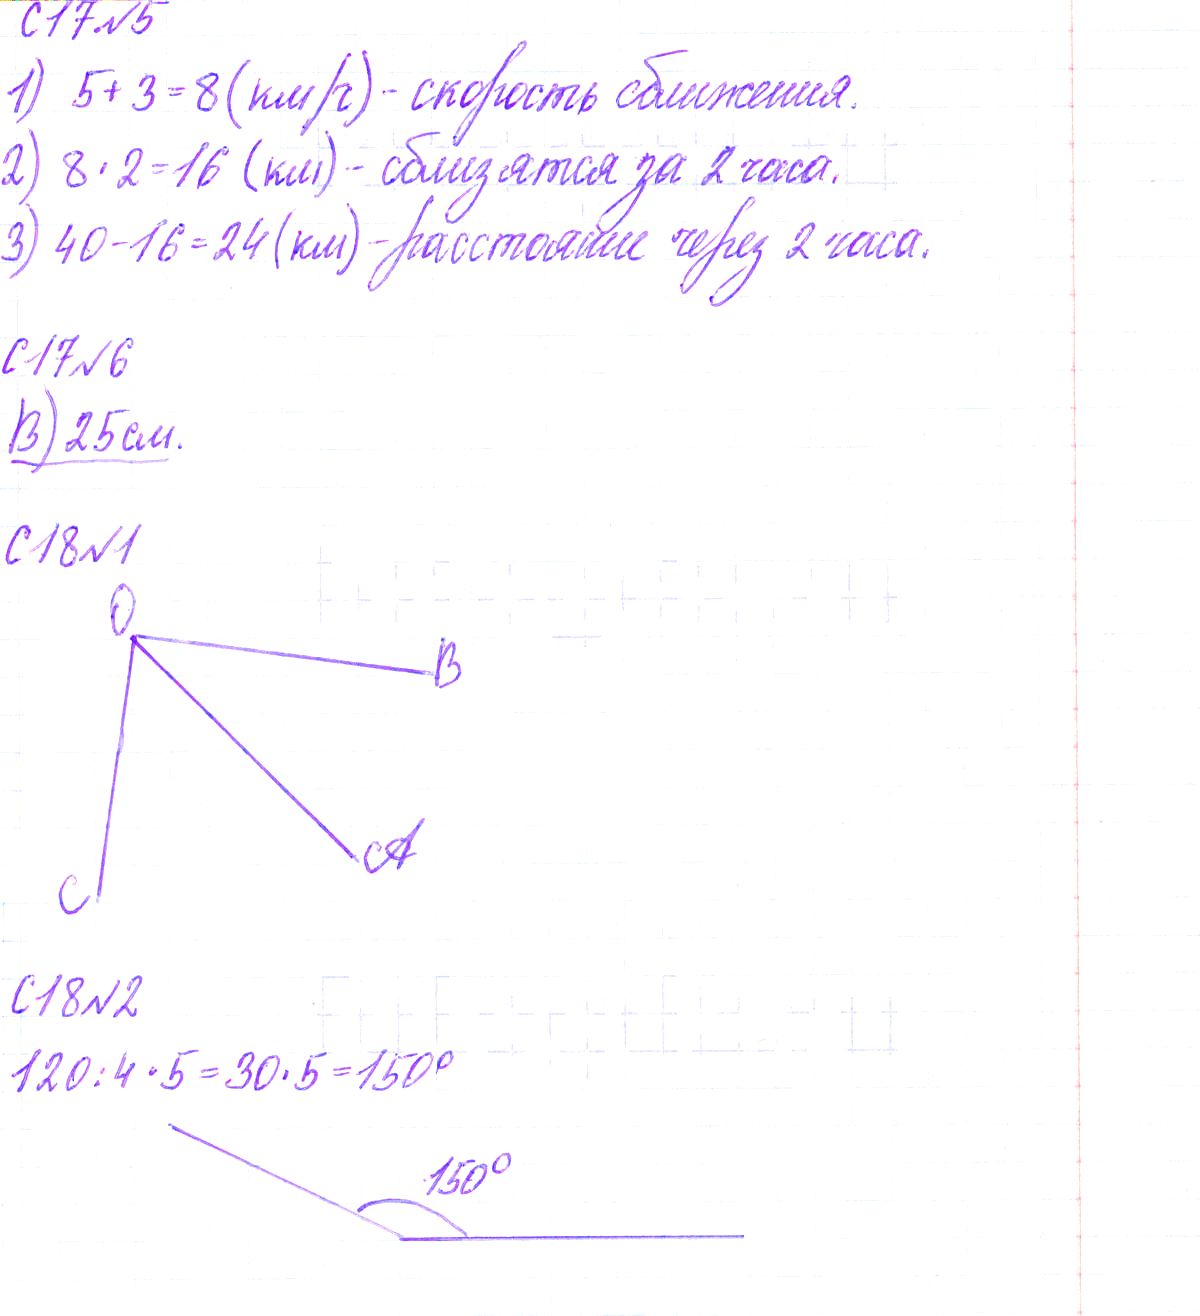 С17№5
1) 5+3=8(км/ч)-скорость сближения.
2) 8·2=16 (км)-сблизятся за 2 часа.
3) 40-16=24(км)-расстояние через 2 часа.
С17№6
В) 25см.
С18№1
О
В
А
С
С18№2
120:4·5=30·5=150°
150°